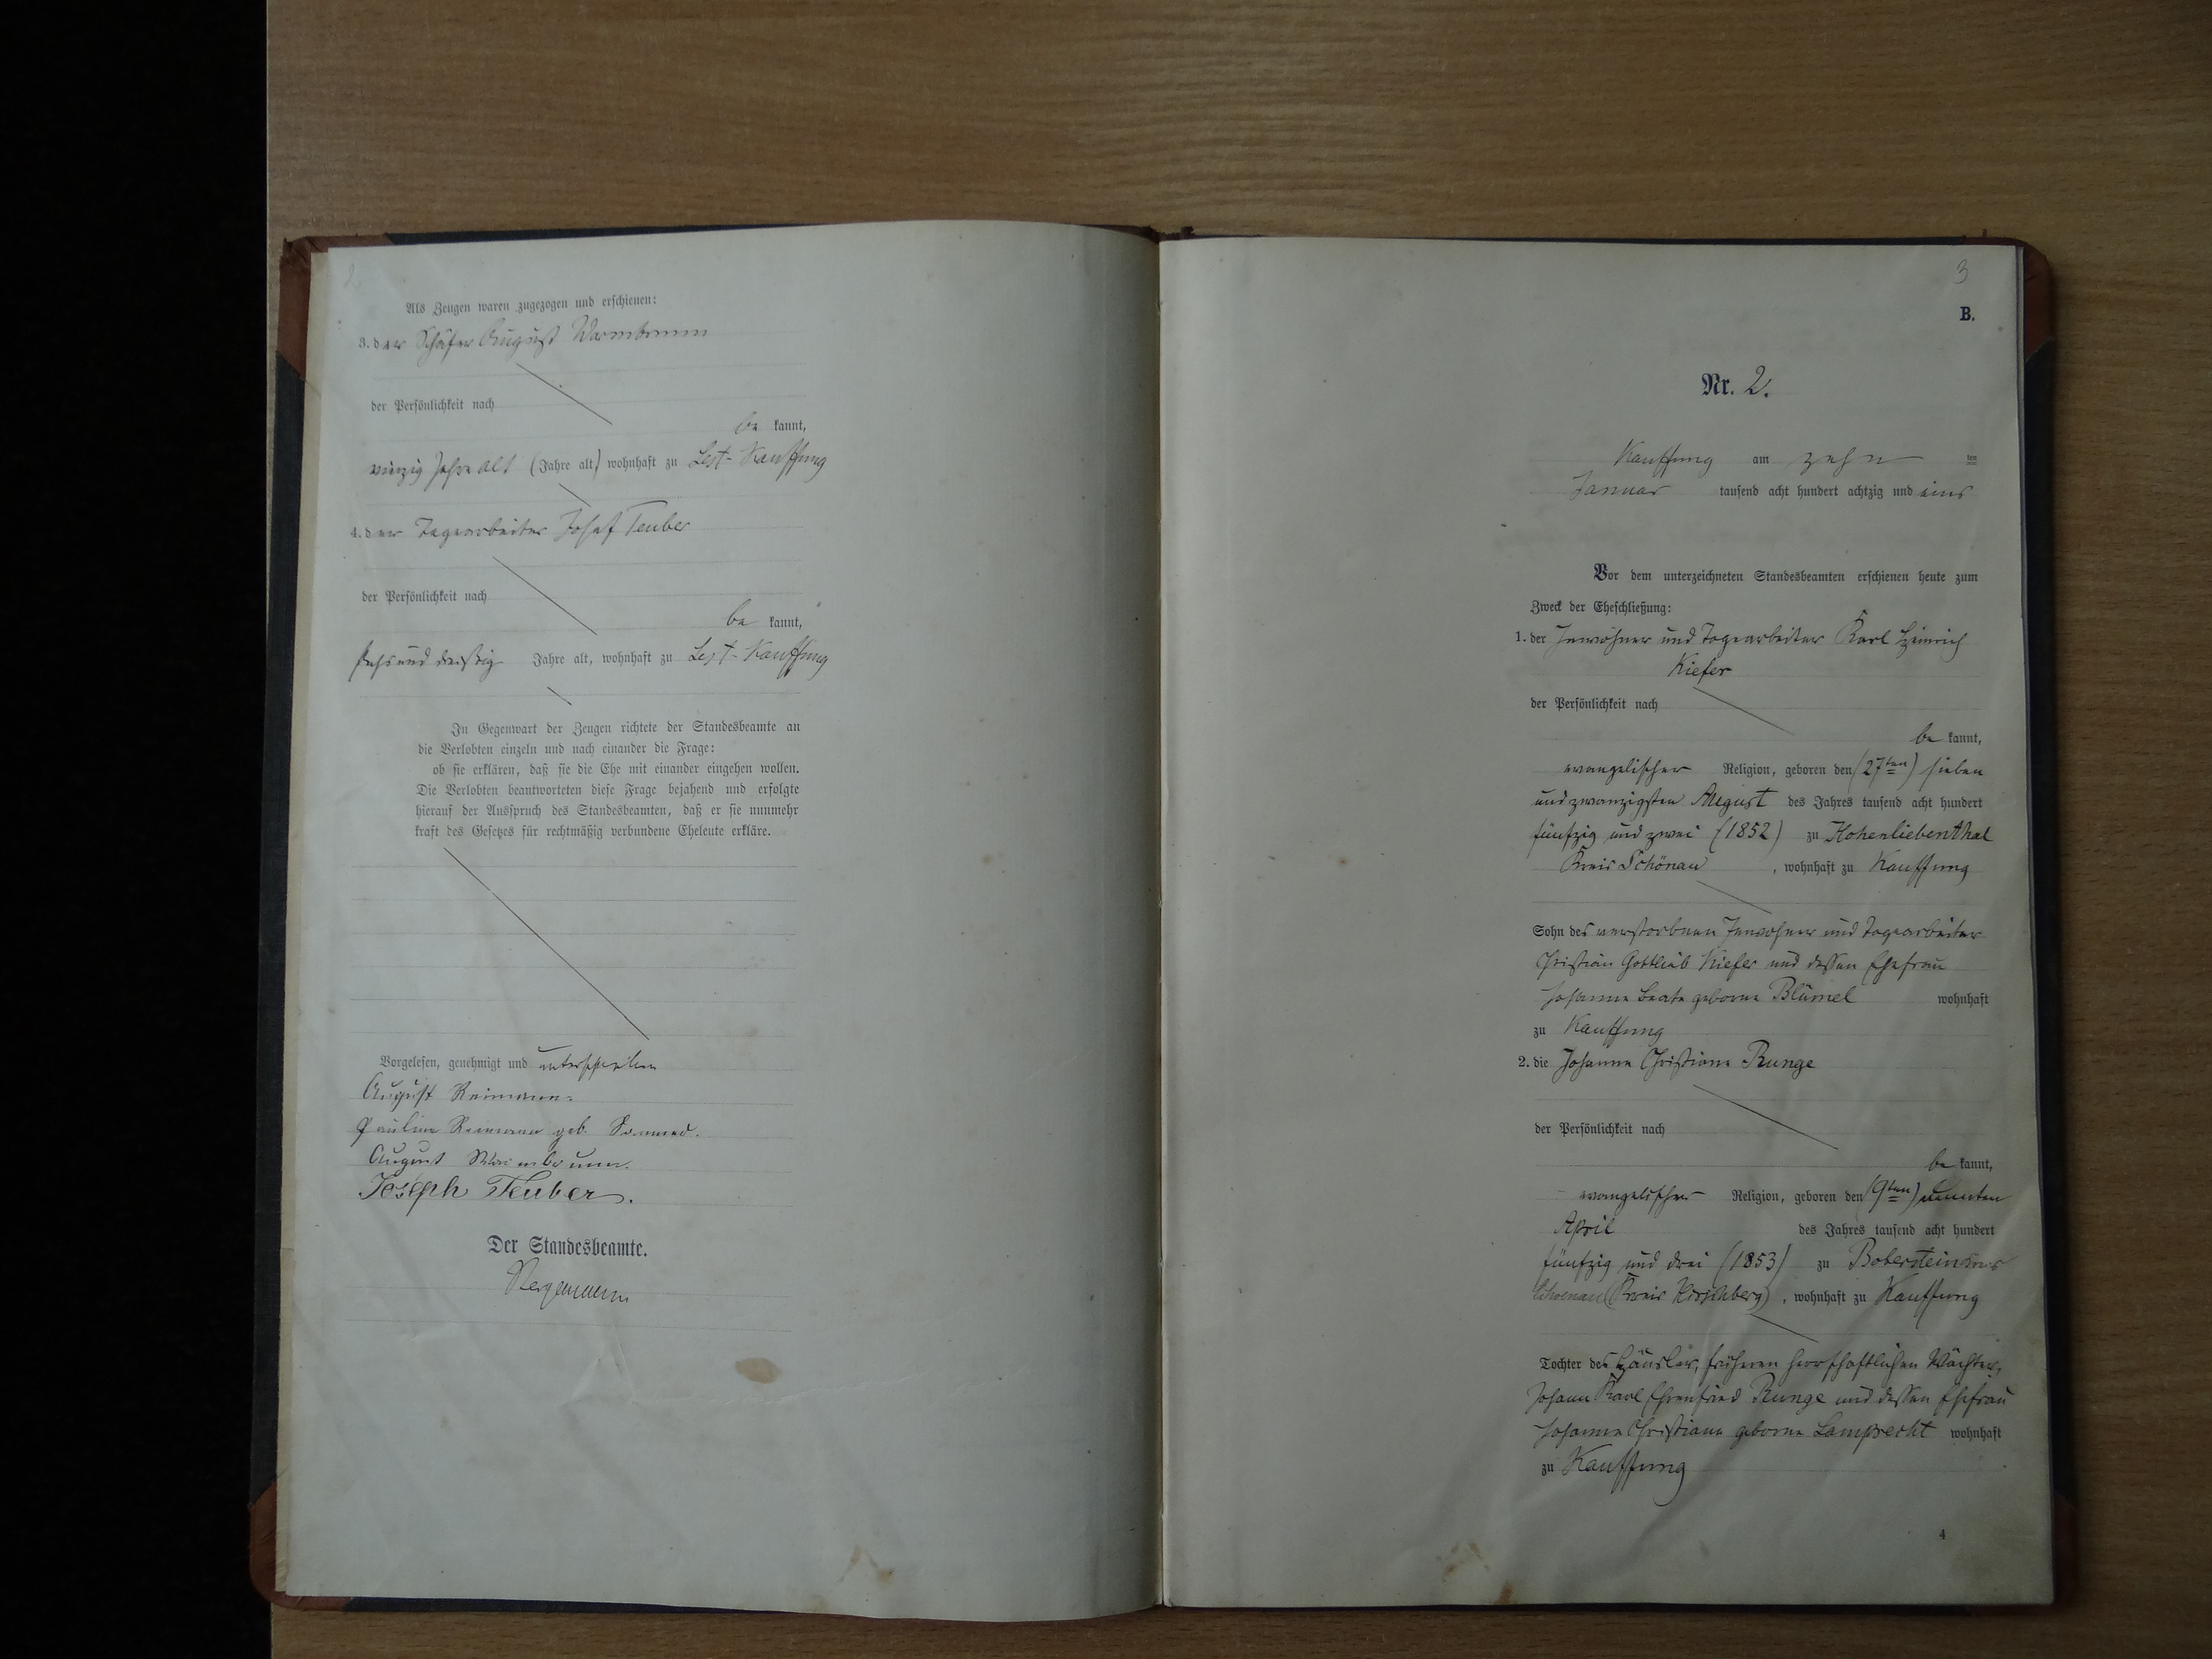 2
Als Zeugen waren zugezogen und erschienen:
3. der Schäfer August Warmbrunn
der Persönlichkeit nach
be kannt,
vierzig Jahre alt (Jahre alt) wohnhaft zu Lest-Kauffung
4. der Tagearbeiter Josef Teuber
der Persönlichkeit nach
be kannt,
sechsunddreißig Jahre alt, wohnhaft zu Lest-Kauffung
In Gegenwart der Zeugen richtete der Standesbeamte an
die Verlobten einzeln und nach einander die Frage:
ob sie erklären, daß sie die Ehe mit einander eingehen wollen.
Die Verlobten beantworteten diese Frage bejahend und erfolgte
hierauf der Ausspruch des Standesbeamten, daß er sie nunmehr
kraft des Gesetzes für rechtmäßig verbundene Eheleute erkläre.
Vorgelesen, genehmigt und unterschrieben
August Reimann.
Pauline Reimann geb.
August Warmbrunn.
Joseph Teuber.
Der Standesbeamte.
3
B.
Nr. 2.
Kauffung am zehn ten
Januar tausend acht hundert achtzig und eins
Vor dem unterzeichneten Standesbeamten erschienen heute zum
Zweck der Eheschließung:
1. der Inwohner und Tagearbeiter Karl Heinrich
Kiefer
der Persönlichkeit nach
be kannt,
evangelischer Religion, geboren den (27ten) sieben
und zwanzigsten August des Jahres tausend acht hundert
fünfzig und zwei (1852) zu Hohenliebenthal
Kreis Schönau, wohnhaft zu Kauffung
Sohn des verstorbnen Inwohner und Tagearbeiter
Christian Gottlieb Kiefer und dessen Ehefrau
Johanne Beate geborne Blümel wohnhaft
zu Kauffung
2. die Johanne Christiane Runge
der Persönlichkeit nach
be kannt,
evangelischer Religion, geboren den (9ten) neunten
April des Jahres tausend acht hundert
fünfzig und drei (1853) zu Boberstein Kreis
Schoenau (Kreis Hirschberg), wohnhaft zu Kauffung
Tochter des Häusler, früheren herrschaftlichen Wächter,
Johann Karl Ehrenfried Runge und dessen Ehefrau
Johanne Christiane geborne Lamprecht wohnhaft
zu Kauffung
4